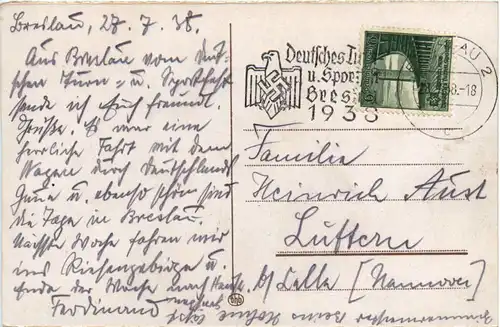 Breslau, 27. 7. 38.
Aus Breslau vom Deut-
schen Turn- u. Sportfest
sende ich Euch freundl.
Grüße. Es war eine
herrliche Fahrt mit dem
Wagen durch Deutschlands
Gaue u. ebenso schön sind
die Tage in Breslau.
Nächste Woche fahren wir
ins Riesengebirge u.
Ende der Woche nach Hause.
Ferdinand
Deutsches Tu
u. Spor
Bres
1938
AU 2
8.-18
Familie
Heinrich Aust
Luttern
b/ Celle [Hannover]